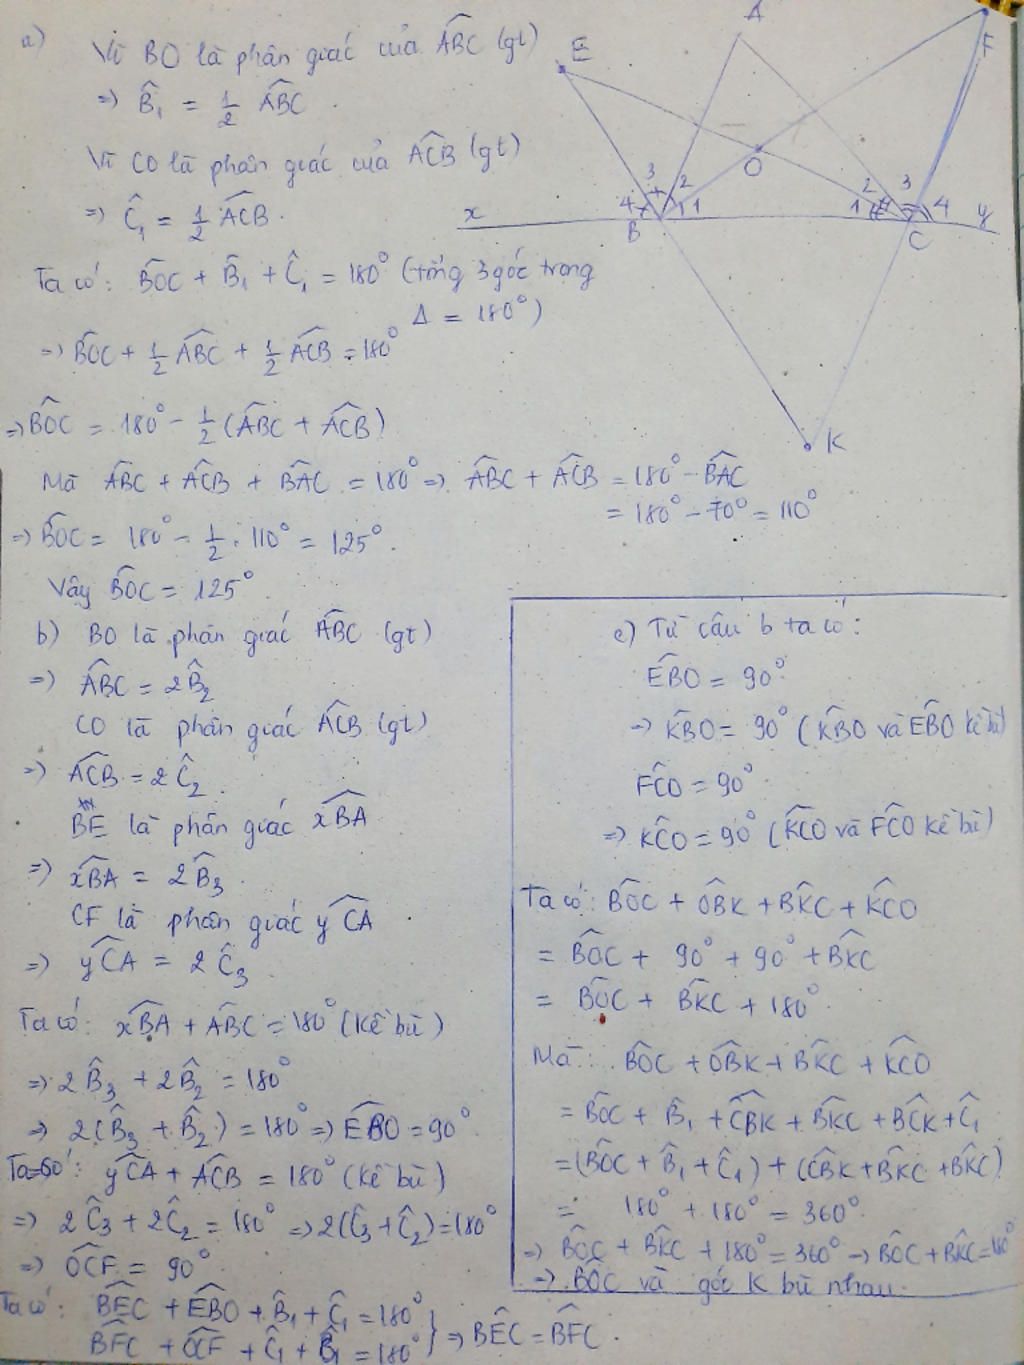 a) Vì BO là phân giác của $\widehat{ABC}$ (gt)
=> $\hat{B}_1$ = $\frac{1}{2}$ $\widehat{ABC}$.
Vì CO là phân giác của $\widehat{ACB}$ (gt)
=> $\hat{C}_1$ = $\frac{1}{2}$ $\widehat{ACB}$.
Ta có: $\widehat{BOC}$ + $\hat{B}_1$ + $\hat{C}_1$ = 180° (tổng 3 góc trong
Δ = 180°)
=> $\widehat{BOC}$ + $\frac{1}{2}$ $\widehat{ABC}$ + $\frac{1}{2}$ $\widehat{ACB}$ = 180°
=> $\widehat{BOC}$ = 180° - $\frac{1}{2}$ ($\widehat{ABC}$ + $\widehat{ACB}$)
Mà $\widehat{ABC}$ + $\widehat{ACB}$ + $\widehat{BAC}$ = 180° => $\widehat{ABC}$ + $\widehat{ACB}$ = 180° - $\widehat{BAC}$
= 180° - 70° = 110°
=> $\widehat{BOC}$ = 180° - $\frac{1}{2}$ . 110° = 125°.
Vậy $\widehat{BOC}$ = 125°.
E
A
F
O
3
2
4
1
x
B
2
3
1
4
y
C
K
b) BO là phân giác $\widehat{ABC}$ (gt)
=> $\widehat{ABC}$ = 2$\hat{B}_2$
CO là phân giác $\widehat{ACB}$ (gt)
=> $\widehat{ACB}$ = 2$\hat{C}_2$.
BE là phân giác $\widehat{xBA}$
=> $\widehat{xBA}$ = 2$\hat{B}_3$.
CF là phân giác $\widehat{yCA}$
=> $\widehat{yCA}$ = 2$\hat{C}_3$.
Ta có: $\widehat{xBA}$ + $\widehat{ABC}$ = 180° (kề bù)
=> 2$\hat{B}_3$ + 2$\hat{B}_2$ = 180°
=> 2($\hat{B}_3$ + $\hat{B}_2$) = 180° => $\widehat{EBO}$ = 90°.
Ta có: $\widehat{yCA}$ + $\widehat{ACB}$ = 180° (kề bù)
=> 2$\hat{C}_3$ + 2$\hat{C}_2$ = 180° => 2($\hat{C}_3$ + $\hat{C}_2$) = 180°
=> $\widehat{OCF}$ = 90°.
Ta có: $\widehat{BEC}$ + $\widehat{EBO}$ + $\hat{B}_1$ + $\hat{C}_1$ = 180°
$\widehat{BFC}$ + $\widehat{OCF}$ + $\hat{C}_1$ + $\hat{B}_1$ = 180° } => $\widehat{BEC}$ = $\widehat{BFC}$.
c) Từ câu b ta có:
$\widehat{EBO}$ = 90°
=> $\widehat{KBO}$ = 90° ($\widehat{KBO}$ và $\widehat{EBO}$ kề bù)
$\widehat{FCO}$ = 90°.
=> $\widehat{KCO}$ = 90° ($\widehat{KCO}$ và $\widehat{FCO}$ kề bù)
Ta có: $\widehat{BOC}$ + $\widehat{OBK}$ + $\widehat{BKC}$ + $\widehat{KCO}$
= $\widehat{BOC}$ + 90° + 90° + $\widehat{BKC}$
= $\widehat{BOC}$ + $\widehat{BKC}$ + 180°.
Mà: $\widehat{BOC}$ + $\widehat{OBK}$ + $\widehat{BKC}$ + $\widehat{KCO}$
= $\widehat{BOC}$ + $\hat{B}_1$ + $\widehat{CBK}$ + $\widehat{BKC}$ + $\widehat{BCK}$ + $\hat{C}_1$
= ($\widehat{BOC}$ + $\hat{B}_1$ + $\hat{C}_1$) + ($\widehat{CBK}$ + $\widehat{BKC}$ + $\widehat{BKC}$)
= 180° + 180° = 360°.
=> $\widehat{BOC}$ + $\widehat{BKC}$ + 180° = 360° => $\widehat{BOC}$ + $\widehat{BKC}$ = 180°
=> $\widehat{BOC}$ và góc K bù nhau.